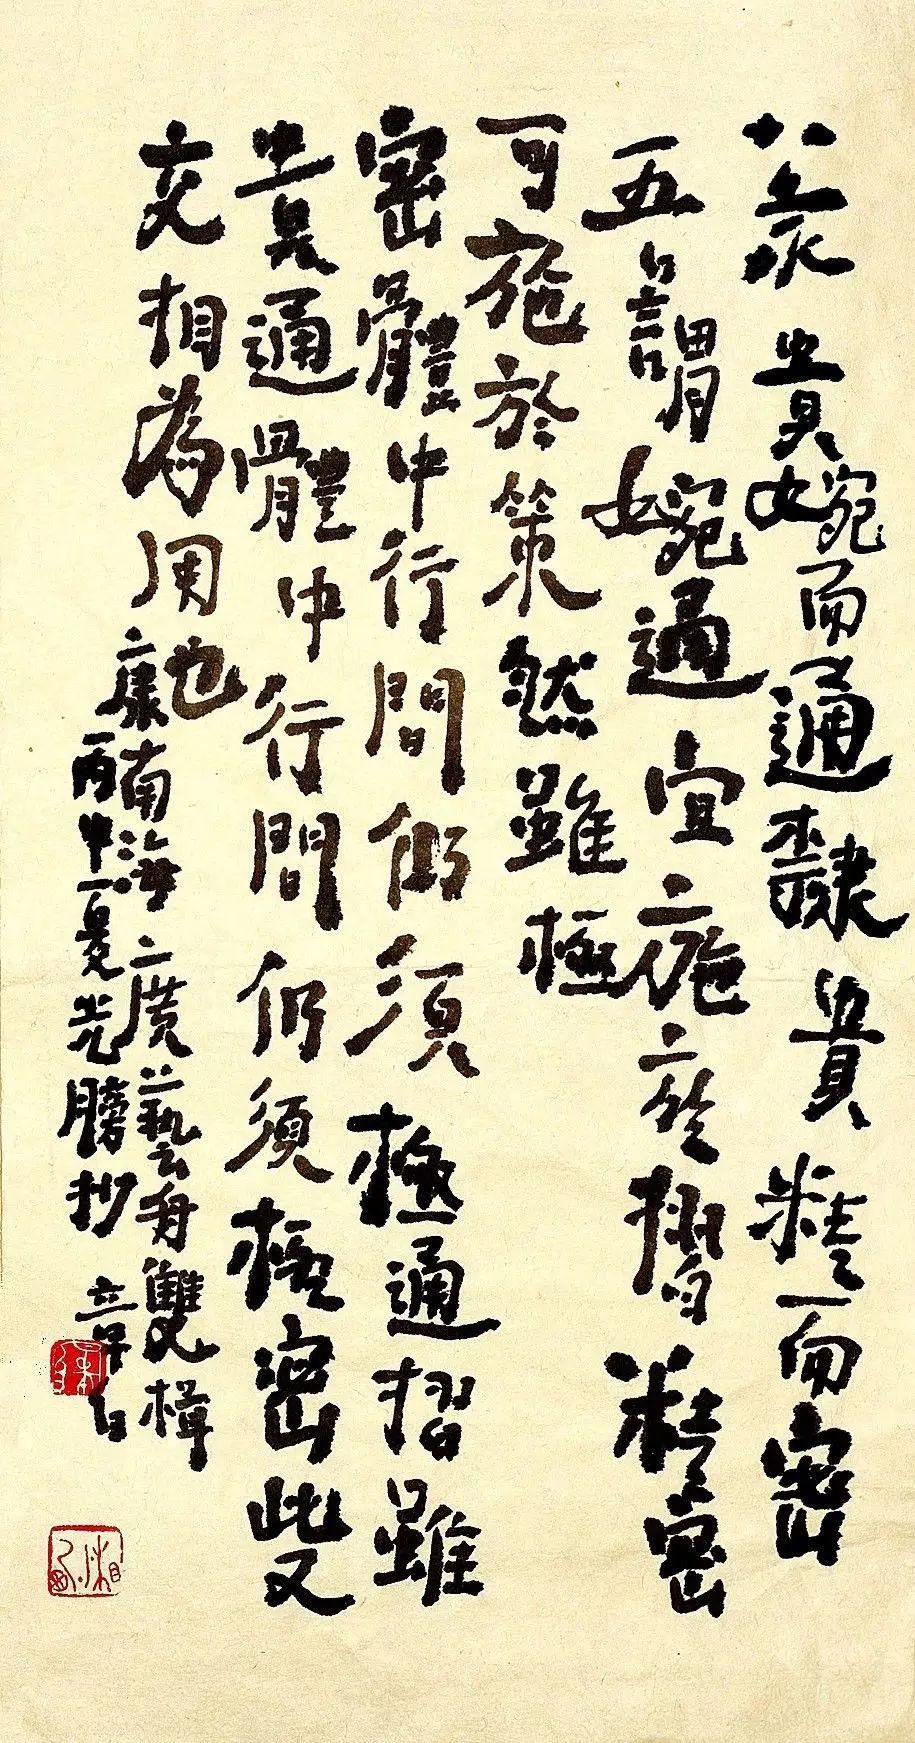 篆貴婉而通隸貴精而密
吾謂婉通宜施於摺精密
可施於策然雖極
密體中行間仍須極通摺雖
貴通體中行間仍須極密此又
交相為用也
康南海廣藝舟雙楫
丙申夏光膀抄